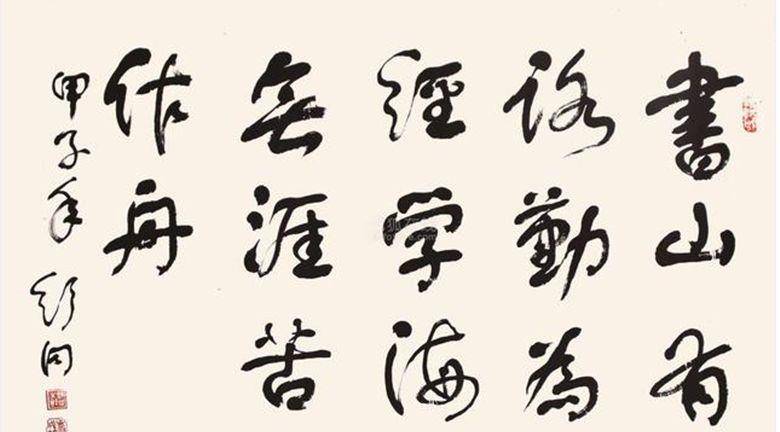 書山有
路勤為
經学海
無涯苦
作舟
甲子年 舒同